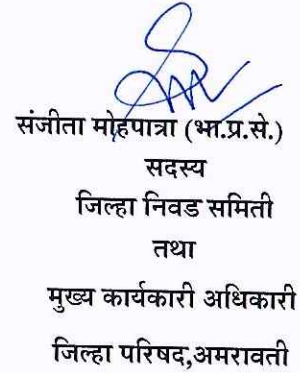 संजीता मोहपात्रा (भा.प्र.से.)
सदस्य
जिल्हा निवड समिती
तथा
मुख्य कार्यकारी अधिकारी
जिल्हा परिषद,अमरावती